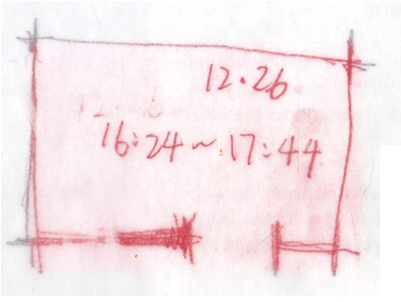 12.26
16:24~17:44